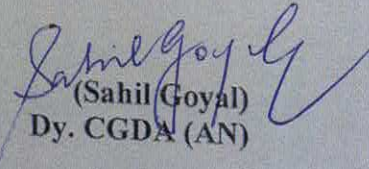 Sahil Goyal
(Sahil Goyal)
Dy. CGDA (AN)